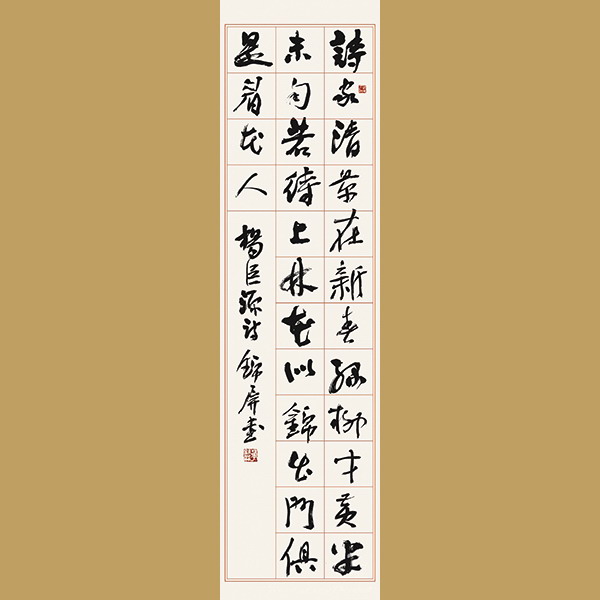 詩家清景在新春綠柳才黃半
未勻若待上林花似錦出門俱
是看花人 楊巨源詩 錦屏書